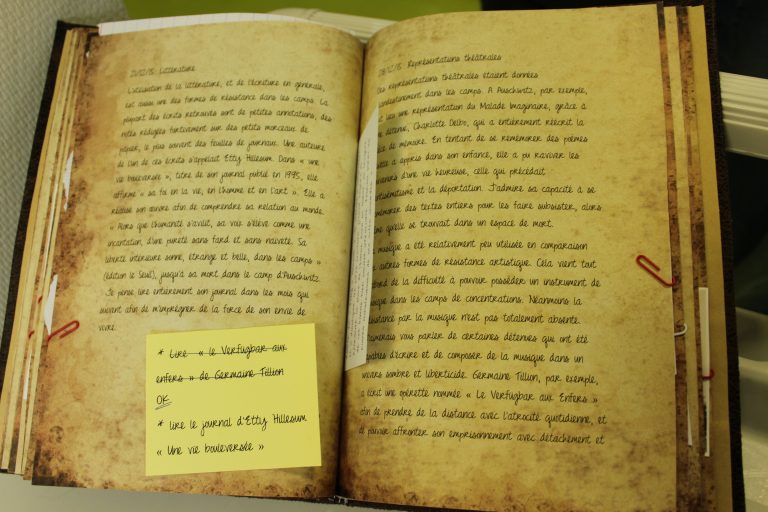 Littérature
L'utilisation de la littérature, et de l'écriture en générale,
est aussi une des formes de résistance dans les camps. La
plupart des écrits retrouvés sont de petites annotations, des
notes rédigées furtivement sur des petits morceaux de
papier, le plus souvent des feuilles de journaux. Une auteure
de l'un de ces écrits s'appelait Etty Hillesum. Dans « une
vie bouleversée », titre de son journal publié en 1995, elle
affirme « sa foi en la vie, en l'homme et en l'art ». Elle a
réalisé son œuvre afin de comprendre sa relation au monde.
« Alors que l'humanité s'avilit, sa voix s'élève comme une
incantation, d'une pureté sans fard et sans naïveté. Sa
liberté intérieure sonne, étrange et belle, dans les camps »
(édition le Seuil), jusqu'à sa mort dans le camp d'Auschwitz.
Je pense lire entièrement son journal dans les mois qui
suivent afin de m'imprégner de la force de son envie de
vivre.
* Lire « le Verfügbar aux
enfers » de Germaine Tillion
OK
* lire le journal d'Etty Hillesum
« Une vie bouleversée »
Représentations théâtrales
Des représentations théâtrales étaient données
clandestinement dans les camps. A Auschwitz, par exemple,
eut lieu une représentation du Malade Imaginaire, grâce à
une détenue, Charlotte Delbo, qui a entièrement réécrit la
pièce de mémoire. En tentant de se remémorer des poèmes
qu'elle a appris dans son enfance, elle a pu raviver les
souvenirs d'une vie heureuse, celle qui précédait
l'antisémitisme et la déportation. J'admire sa capacité à se
remémorer des textes entiers pour les faire subsister, alors
même qu'elle se trouvait dans un espace de mort.
La musique a été relativement peu utilisée en comparaison
aux autres formes de résistance artistique. Cela vient tout
d'abord de la difficulté à pouvoir posséder un instrument de
musique dans les camps de concentrations. Néanmoins la
résistance par la musique n'est pas totalement absente.
J'aimerais vous parler de certaines détenues qui ont été
capables d'écrire et de composer de la musique dans un
univers sombre et liberticide. Germaine Tillion, par exemple,
a écrit une opérette nommée « Le Verfügbar aux Enfers »
afin de prendre de la distance avec l'atrocité quotidienne, et
de pouvoir affronter son emprisonnement avec détachement et